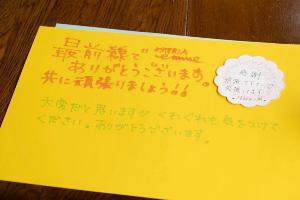 最前線で
ありがとうございます。
共に頑張りましょう!!
大変だと思いますが くれぐれも 気をつけて
ください。ありがとうございます。
感謝